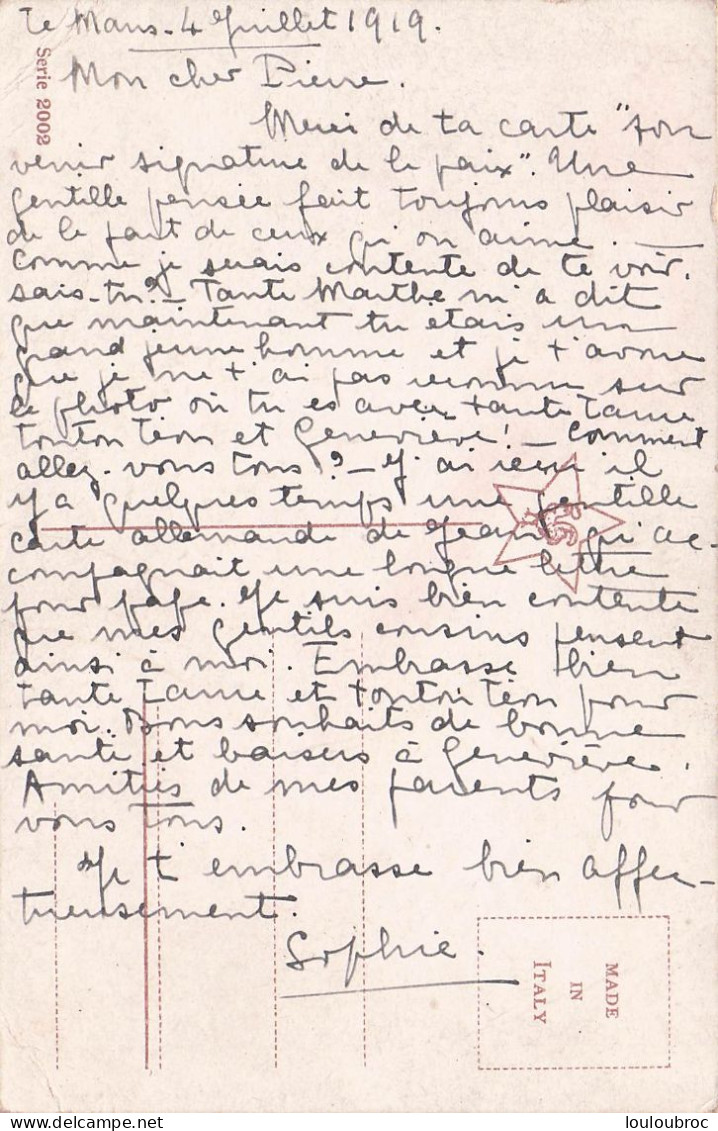 Le Mans - 4 Juillet 1919.
Serie 2002
Mon cher Pierre.
Merci de ta carte "sou
venir signature de la paix". Une
gentille pensée fait toujours plaisir
de la part de ceux qu'on aime. —
Comme je serais contente de te voir,
sais-tu? - Tante Marthe m'a dit
que maintenant tu étais un
grand jeune homme et je t'avoue
que je ne t'ai pas reconnu sur
la photo où tu es avec tante
tonton Léon et Geneviève! - Comment
allez-vous tous? - J'ai reçu il
y a quelques temps une gentille
carte allemande de Jean qui ac-
compagnait une longue lettre
pour papa. Je suis bien contente
que mes gentils cousins pensent
ainsi à moi. Embrasse bien
tante et tonton Léon pour
moi. Bons souhaits de bonne
santé et baisers à Geneviève.
Amitiés de mes parents pour
vous tous.
Je t'embrasse bien affec-
tueusement.
Sophie.
MADE
IN
ITALY
louloubroc